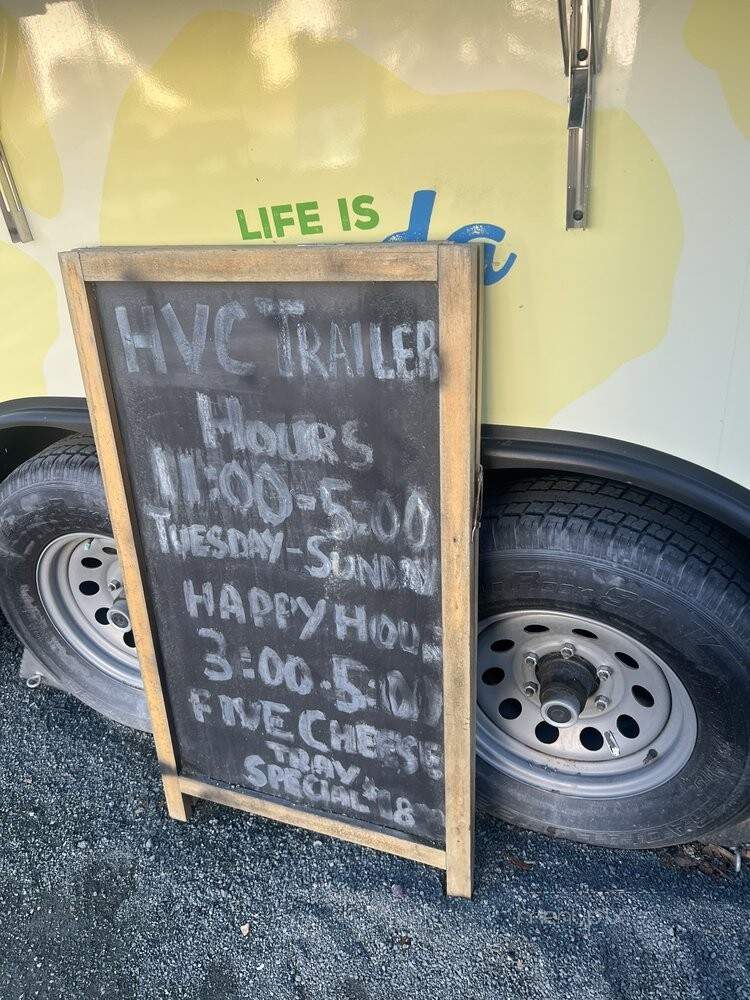 LIFE IS
HVC TRAILER
HOURS
11:00-5:00
TUESDAY-SUNDAY
HAPPY HOUR
3:00-5:00
FIVE CHEESE
TRAY
SPECIAL $18